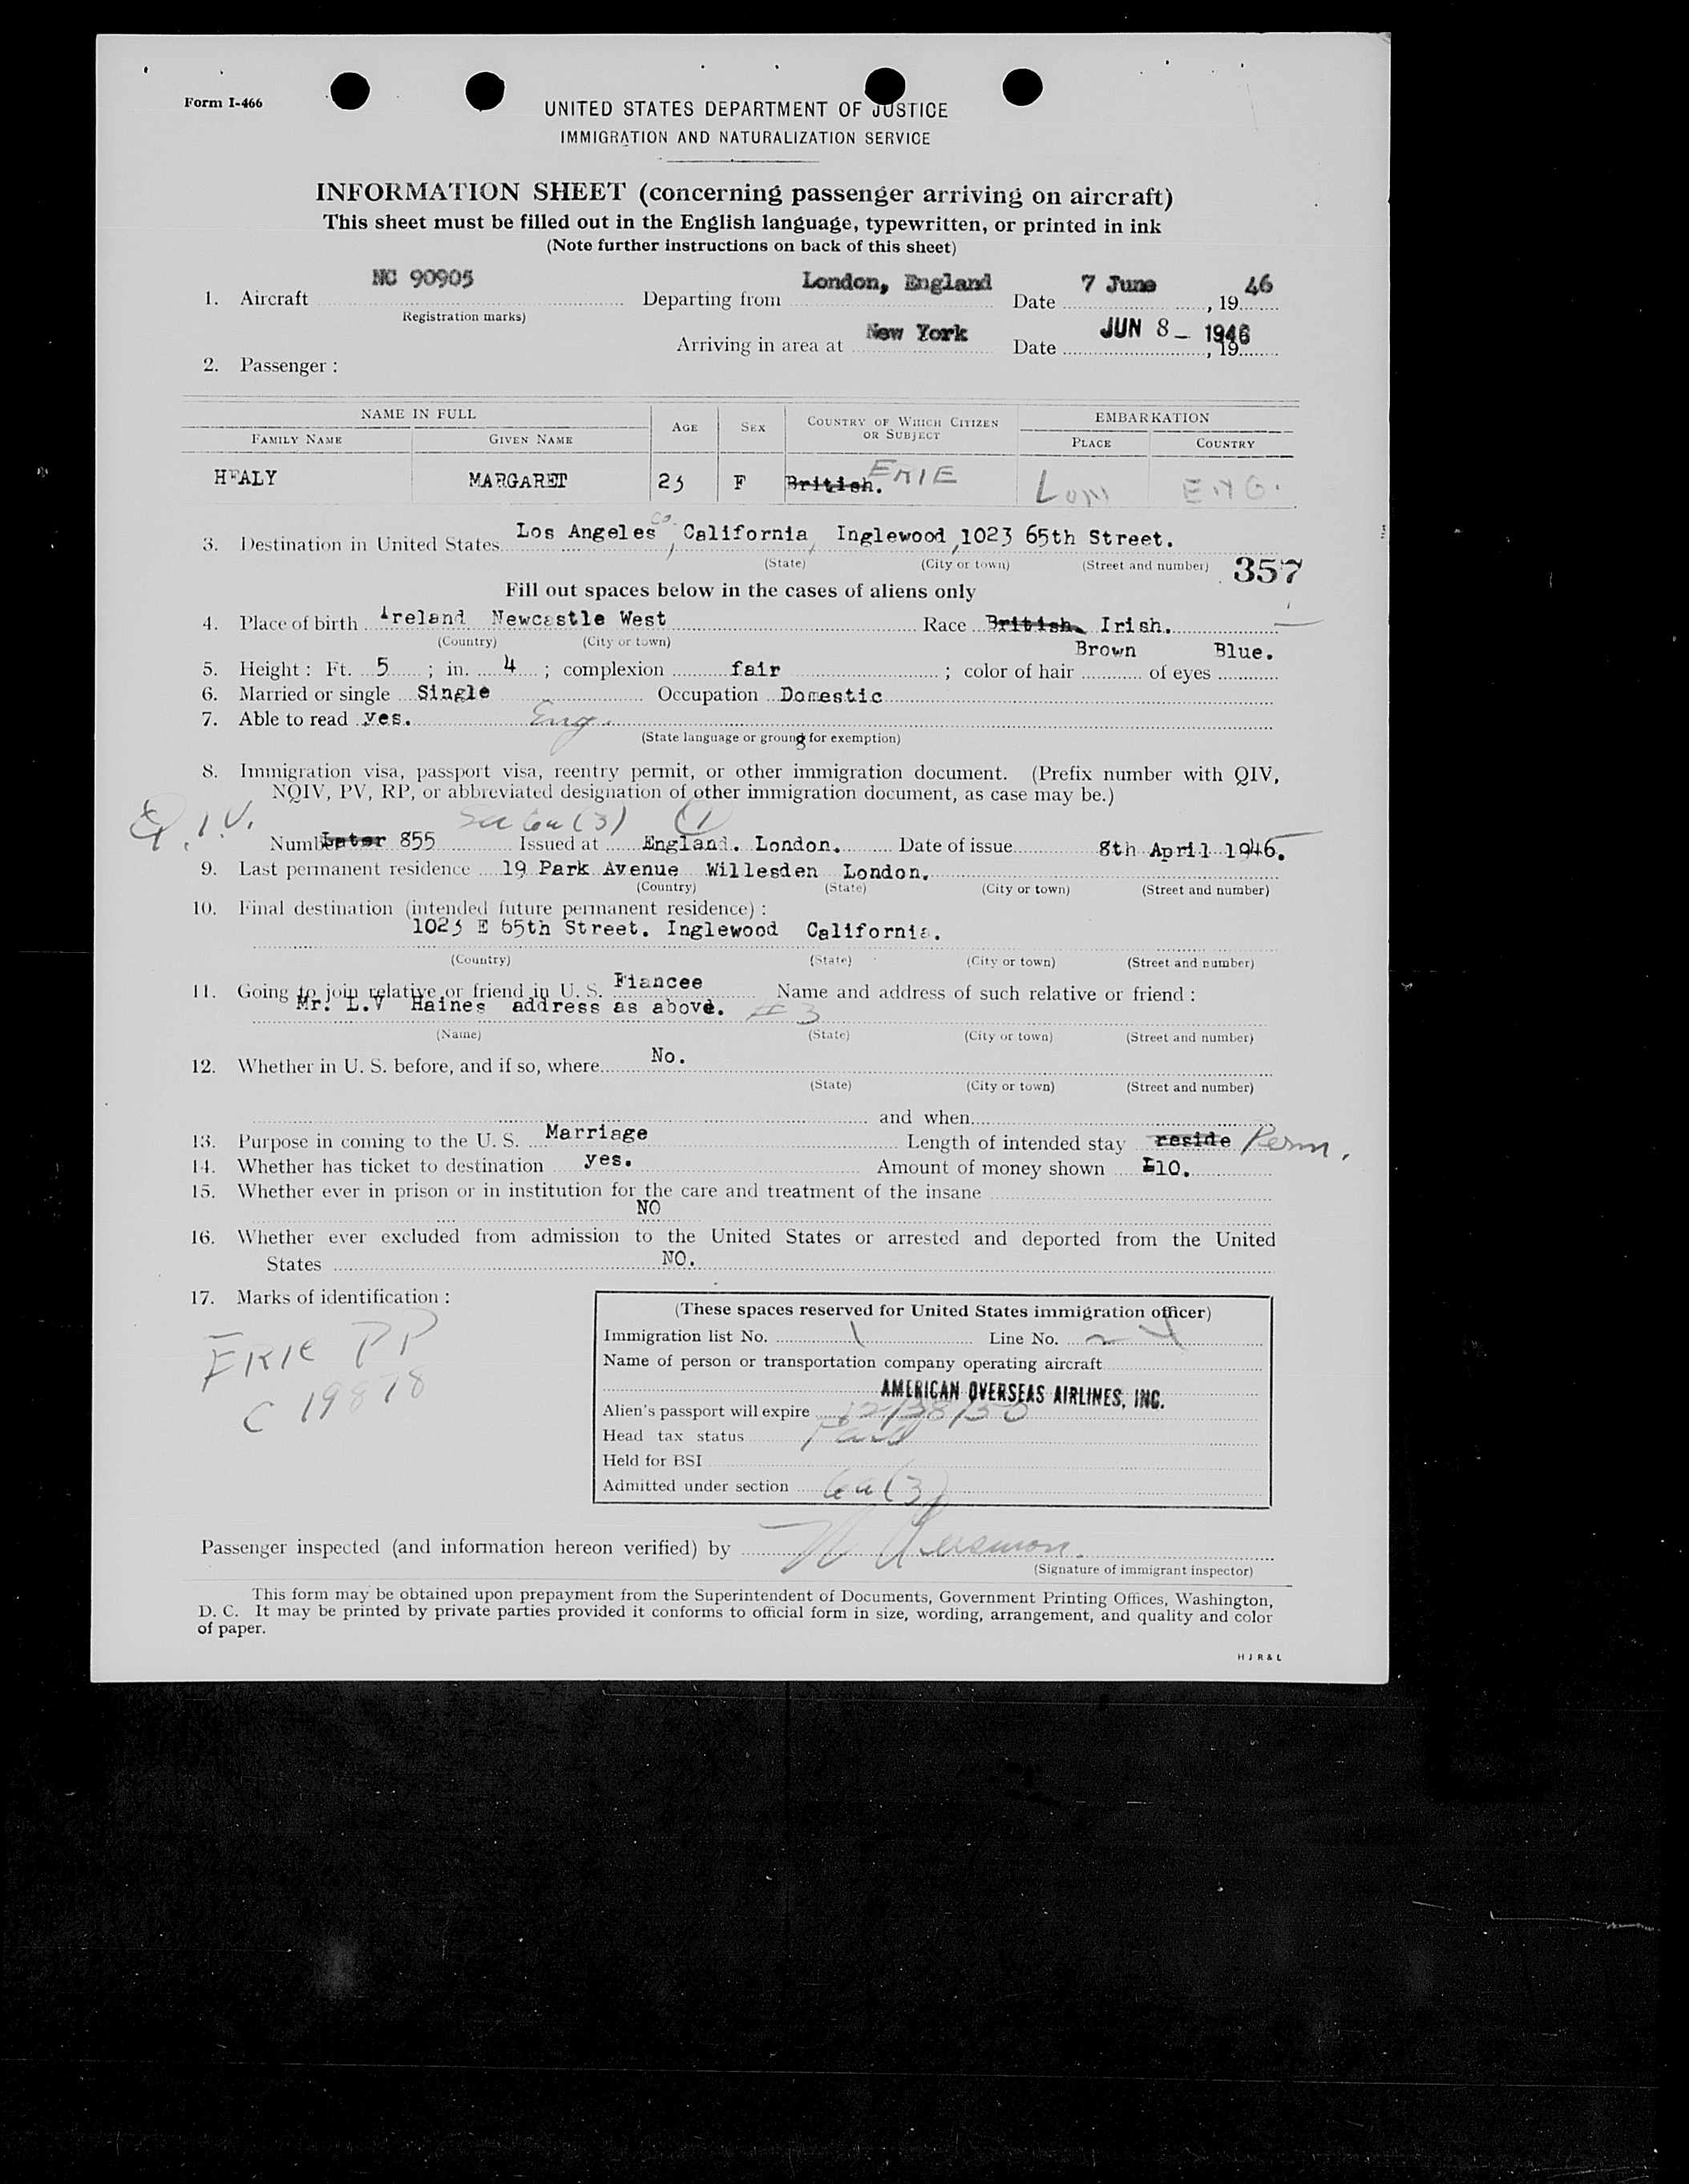 Form I-466
UNITED STATES DEPARTMENT OF JUSTICE
IMMIGRATION AND NATURALIZATION SERVICE
INFORMATION SHEET (concerning passenger arriving on aircraft)
This sheet must be filled out in the English language, typewritten, or printed in ink
(Note further instructions on back of this sheet)
1. Aircraft NC 90905 Departing from London, England Date 7 June, 1946
(Registration marks)
Arriving in area at New York Date JUN 8 - 1946, 19
2. Passenger :
NAME IN FULL AGE SEX COUNTRY OF WHICH CITIZEN OR SUBJECT EMBARKATION
FAMILY NAME GIVEN NAME PLACE COUNTRY
HEALY MARGARET 23 F British. ERIE Lon ENG.
3. Destination in United States Los Angeles Co. , California, Inglewood, 1023 65th Street.
(State) (City or town) (Street and number) 357
Fill out spaces below in the cases of aliens only
4. Place of birth Ireland Newcastle West Race British. Irish.
(Country) (City or town)
5. Height : Ft. 5 ; in. 4 ; complexion fair ; color of hair Brown of eyes Blue.
6. Married or single Single Occupation Domestic
7. Able to read yes. Eng.
(State language or ground for exemption)
8. Immigration visa, passport visa, reentry permit, or other immigration document. (Prefix number with QIV,
NQIV, PV, RP, or abbreviated designation of other immigration document, as case may be.)
Q.I.V. Sec 6a (3) (1)
Number 855 Issued at England. London. Date of issue 8th April 1946.
9. Last permanent residence 19 Park Avenue Willesden London.
(Country) (State) (City or town) (Street and number)
10. Final destination (intended future permanent residence) :
1023 E 65th Street. Inglewood California.
(Country) (State) (City or town) (Street and number)
11. Going to join relative or friend in U. S. Fiancee Name and address of such relative or friend :
Mr. L.V Haines address as above. # 3
(Name) (State) (City or town) (Street and number)
12. Whether in U. S. before, and if so, where No.
(State) (City or town) (Street and number)
and when
13. Purpose in coming to the U. S. Marriage Length of intended stay reside Perm.
14. Whether has ticket to destination yes. Amount of money shown £10.
15. Whether ever in prison or in institution for the care and treatment of the insane
NO
16. Whether ever excluded from admission to the United States or arrested and deported from the United
States NO.
17. Marks of identification :
ERIE PP
C 19878
(These spaces reserved for United States immigration officer)
Immigration list No. 1 Line No.
Name of person or transportation company operating aircraft
AMERICAN OVERSEAS AIRLINES, INC.
Alien's passport will expire 12/28/50
Head tax status Paid
Held for BSI
Admitted under section 6a(3)
Passenger inspected (and information hereon verified) by
(Signature of immigrant inspector)
This form may be obtained upon prepayment from the Superintendent of Documents, Government Printing Offices, Washington,
D. C. It may be printed by private parties provided it conforms to official form in size, wording, arrangement, and quality and color
of paper.
H J R & L